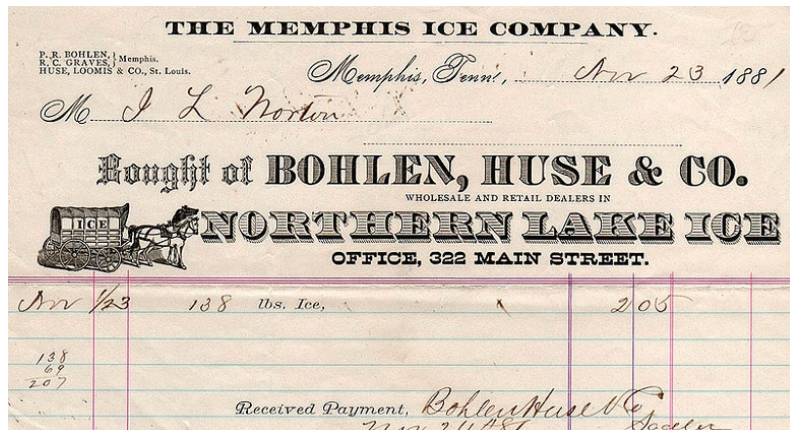 THE MEMPHIS ICE COMPANY.
P. R. BOHLEN,
R. C. GRAVES, } Memphis.
HUSE, LOOMIS & CO., St. Louis.
Memphis, Tenn., Nov 23 1881
M J L Norton
Bought of BOHLEN, HUSE & CO.
WHOLESALE AND RETAIL DEALERS IN
ICE
NORTHERN LAKE ICE
OFFICE, 322 MAIN STREET.
Nov 1/23 138 lbs. Ice, 2 05
138
69
207
Received Payment, Bohlen Huse & Co